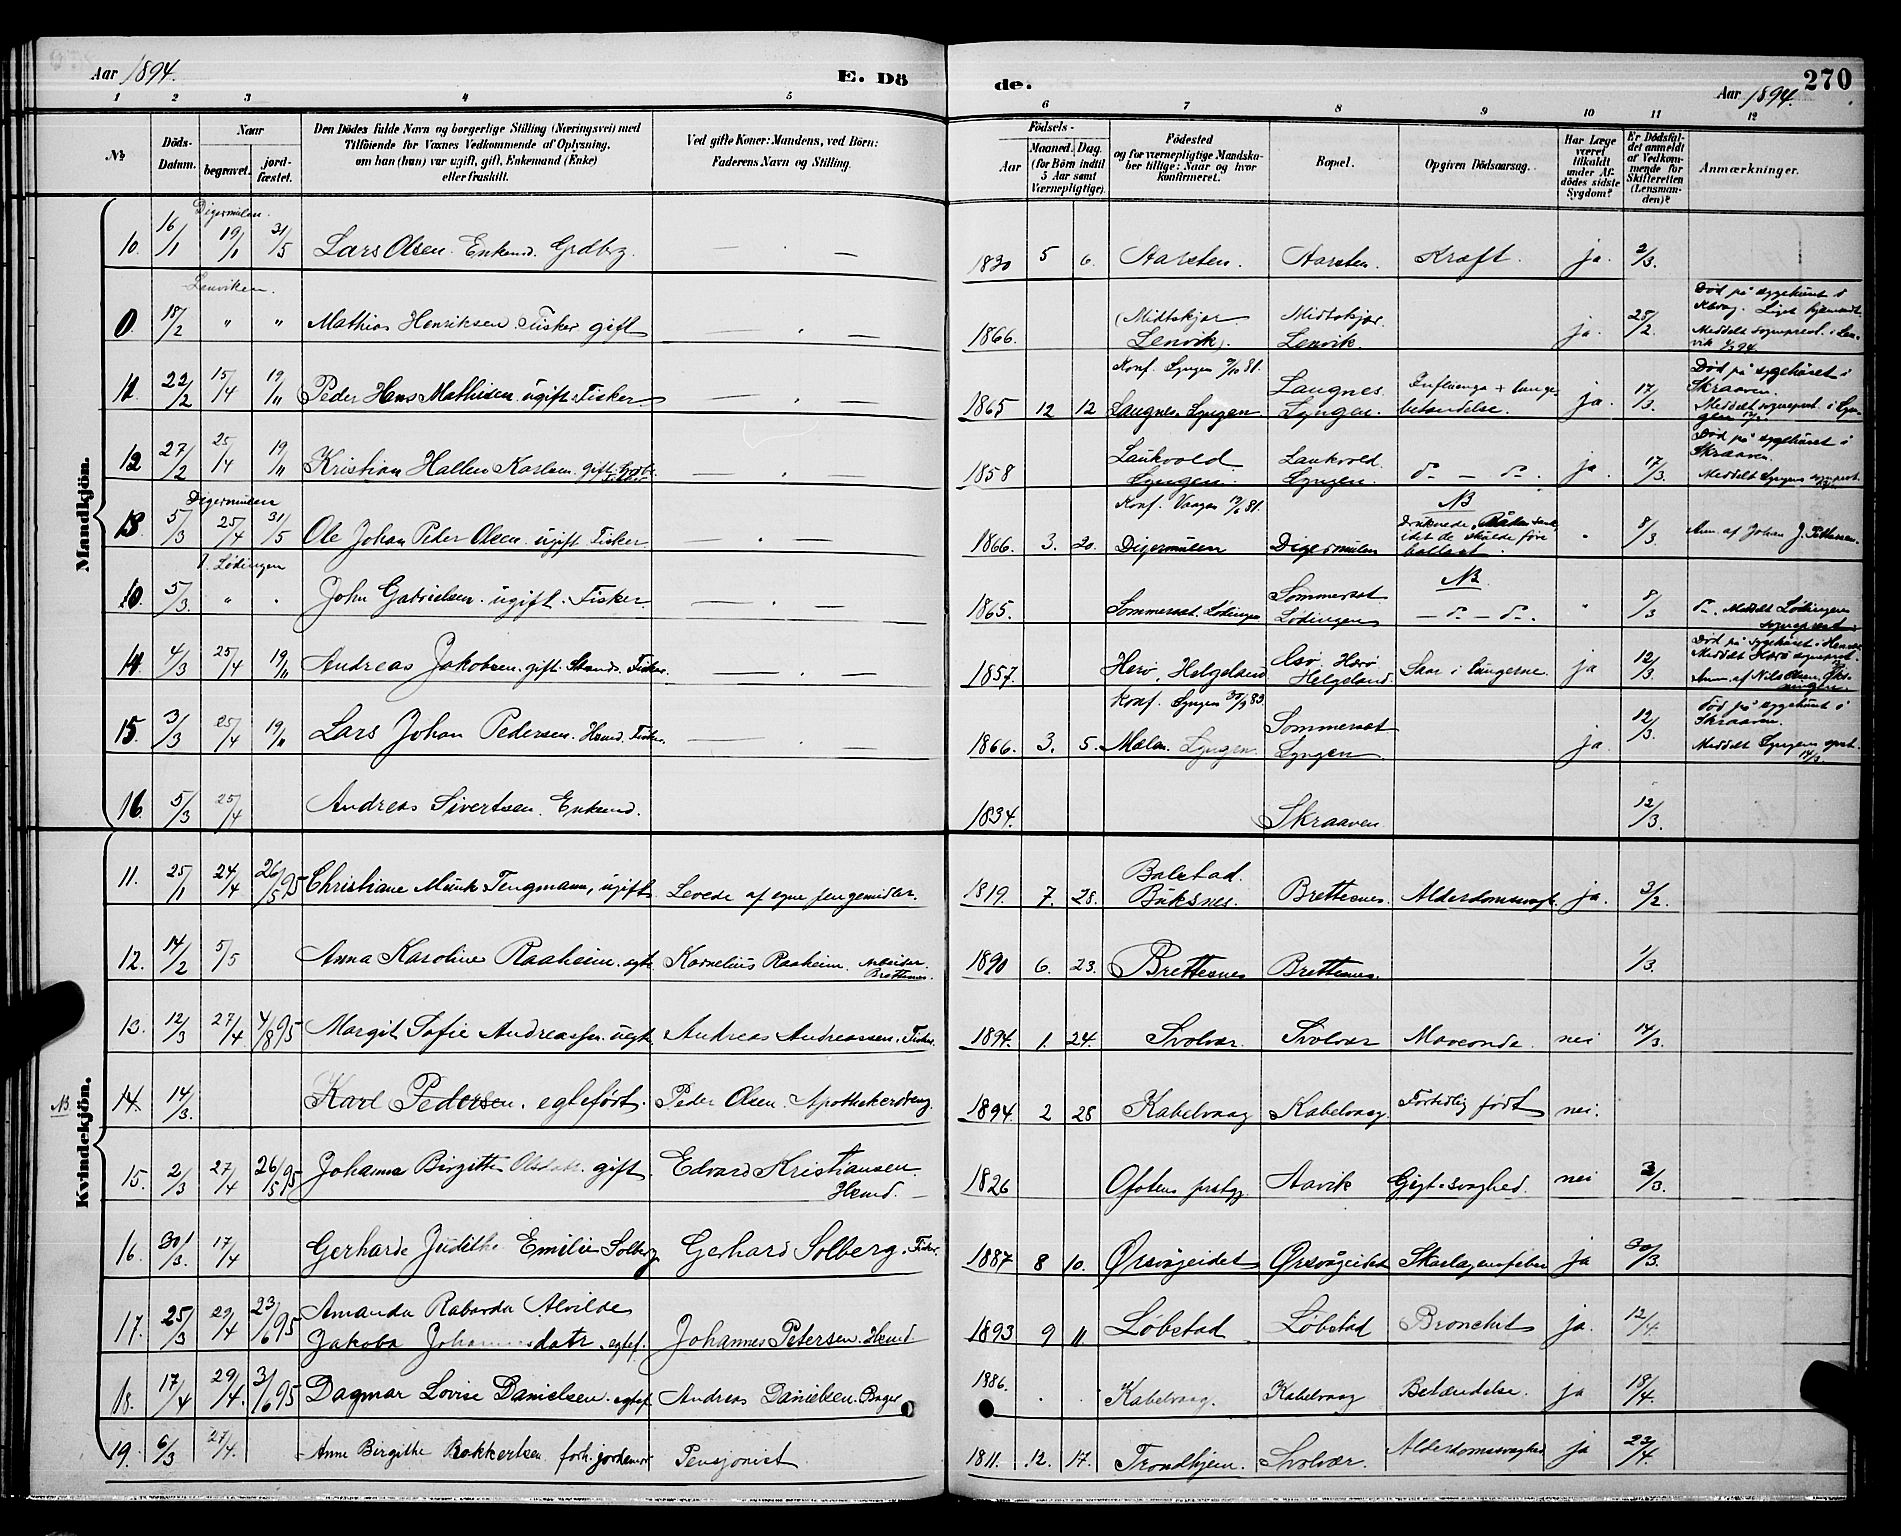 Aar 1894.
E. Dö
de.
Aar 1894.
270
1 2 3 4 5 6 7 8 9 10 11 12
№
Döds-
Datum.
Naar
begravet.
jord-
fæstet.
Den Dödes fulde Navn og borgerlige Stilling (Næringsvei) med
Tilföiende for Voxnes Vedkommende af Oplysning,
om han (hun) var ugift, gift, Enkemand (Enke)
eller fraskilt.
Ved gifte Koner: Mandens, ved Börn:
Faderens Navn og Stilling.
Födsels-
Aar
Maaned. Dag.
(for Börn indtil
5 Aar samt
Værnepligtige).
Födested
og for værnepligtige Mandska-
ber tillige: Naar og hvor
konfirmeret.
Bopæl.
Opgiven Dödsaarsag.
Har Læge
været
tilkaldt
under Af-
dödes sidste
Sygdom?
Er Dödsfal-
det anmeldt
af Vedkom-
mende for
Skifteretten
(Lensman-
den)?
Anmærkninger.
Mandkjön.
Digermulen.
10. 16/1 19/1 31/5 Lars Olsen. Enkemd. Grdbrg. — . — 1830 5 6. Aarsten. Aarsten. Kræft. ja. 2/3.
Lenviken.
0 18/2 " " Mathias Henriksen. Fisker gift — . — 1866. (Midtskjær Lenvik). Midtskjær. Lenvik. ja. 25/2.
Död på sygehuset i
Kbvåg. Liget hjemsendt.
Meddelt sogneprest. i Len-
vik
Konf. Lyngen 9/10 81.
11 22/2 15/4 19/11 Peder Hans Mathisen ugift. Fisker — . — 1865 12 12 Langnes. Lyngen Langnes. Lyngen. Influenza + lunge-
betændelse. ja. 17/3.
Död på sygehuset i
Skraaven.
Meddelt sogneprest. i Lyn-
gen
12 27/2 25/4 19/11 Kristian Hallen Karlsen. gift. — . — 1858 Laukvold Lyngen. Laukvold. Lyngen. do — do. ja. 17/3.
Död på sygehuset i
Skraaven.
Meddelt Lyngens
Digermulen
Konf. Vaagan 81. NB
13 5/3 25/4 31/5 Ole Johan Peder Olsen. ugift. Fisker. — . — 1866. 3. 20. Digermulen Digermulen Druknede.
idet de skulde före
ballast. " 8/3. Anm. af Johan J.
Lødingen
NB.
10. 5/3. " . John Gabrielsen. ugift. Fisker. — . — 1865. Sommerset. Lödingen Sommerset Lödingen — do — do. " 8/3 do. Meddelt Lödingens
sogneprest
14 4/3 25/4 19/11 Andreas Jakobsen. gift. Strands. Fisker. — . — 1857. Herö, Helgeland Herö Helgeland. Saar i lungerne. ja 12/3.
Död på sygehuset i
Meddelt Herö sogneprest.
Anm. af Nils Olsen,
Konf. Lyngen 30/9 83.
15. 3/3 25/4 19/11 Lars Johan Pedersen. Hsmd. Fisker. — . — 1866. 3. 5. Lyngen. Sommerset Lyngen ja. 12/3.
Död på sygehuset i
Skraaven.
Meddelt Lyngens sprst.
14/3.
16. 5/3 25/4 Andreas Sivertsen. Enkemd. 1834. Skraaven 12/3.
Kvindekjön.
11. 25/1 24/4 26/5 95 Christiane Munk Tengmann, ugift. Levede af egne pengemidler. 1819. 7. 28. Balstad. Buksnes. Brettesnes. Alderdomssvagh. ja. 3/2.
12. 14/2 5/5 Anna Karoline Raaheim. egte. Kornelius Raaheim. Arbeider
Brettesnes. 1890 6. 23. Brettesnes Brettesnes. 1/3.
13. 12/3 27/4 4/8 95 Margit Sofie Andreassen. uegte. Andreas Andreassen. Fisker. 1894. 1. 24. Svolvær. Svolvær Maveonde. nei 17/3.
NB 14. 14/3. Karl Pedersen. egtefödt. Peder Olsen. Apothekerdreng. 1894. 2 28 Kabelvaag Kabelvaag Fortidlig födt nei.
15. 2/3 27/4 26/5 95 Johanna Birgitte Olsdatr. gift. Edvard Kristiansen.
Hsmd. — 1826 Ofotens prstgj. Aavik Gigtsvaghed. nei 3/3.
16. 30/3. 17/4 Gerharde Judithe Emilie Solberg Gerhard Solberg. Fisker. 1887 8 10. Ørsvågeidet Ørsvågeidet Skarlagensfeber ja 30/3.
17. 25/3 29/4 23/6 95 Amanda Rabarda Alvilde
Jakoba Johannesdatr. egtef. Johannes Petersen. Hsmd. 1893 9 11 Löbstad Löbstad Bronchit ja. 12/4.
18. 17/4 29/4. 3/6 95 Dagmar Lovise Danielsen. egtef. Andreas Danielsen. Bager 1886. . . Kabelvaag. Kabelvaag Betændelse. ja 18/4.
19. 6/3 27/4. Anne Birgithe Bakkertsen. forh. jordemor Pensjonist 1811. 12. 17. Trondhjem. Svolvær. Alderdomssvaghed ja 23/4.